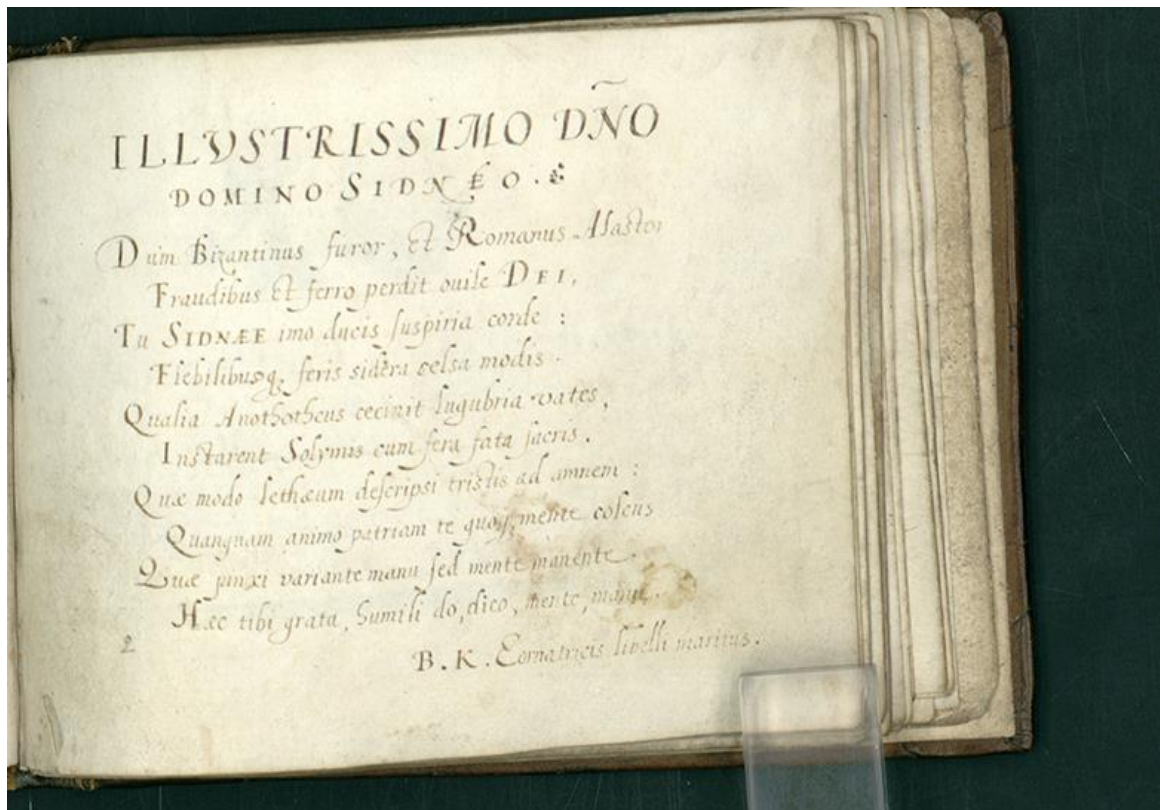 ILLVSTRISSIMO DÑO
DOMINO SIDNÆO.
Dum Bizantinus furor, et Romanus Alastor
Fraudibus et ferro perdit ouile DEI,
Tu SIDNÆE imo ducis suspiria corde :
Flebilibusq, feris sidera celsa modis.
Qualia Anothotheus cecinit lugubria vates,
Instarent Solymis cum fera fata sacris.
Quæ modo lethæum descripsi tristis ad amnem :
Quanquam animo patriam te quoq, mente colens
Quæ pinxi variante manu sed mente manente.
Hæc tibi grata, humili do, dico, mente, manu.
2
B. K. libelli maritus.